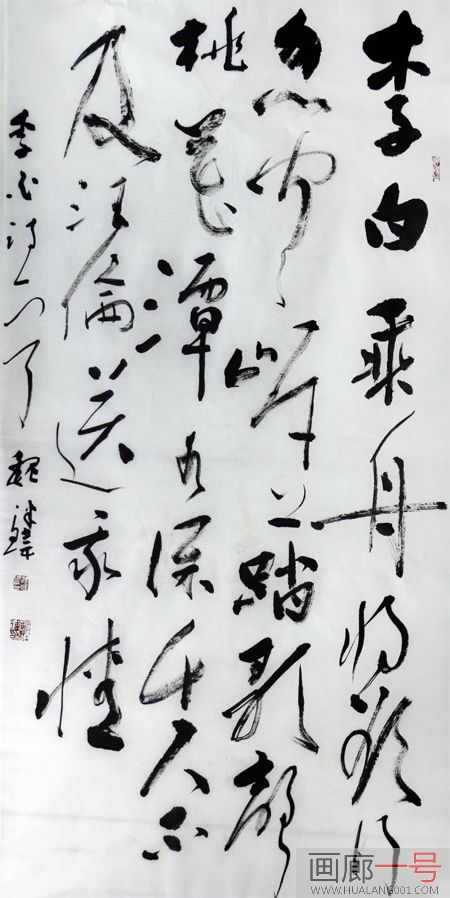 李白乘舟将欲行
忽闻岸上踏歌聲
桃花潭水深千尺不
及汪倫送我情
李白诗一首 魏
画廊一号
WWW.HUALANG001.COM